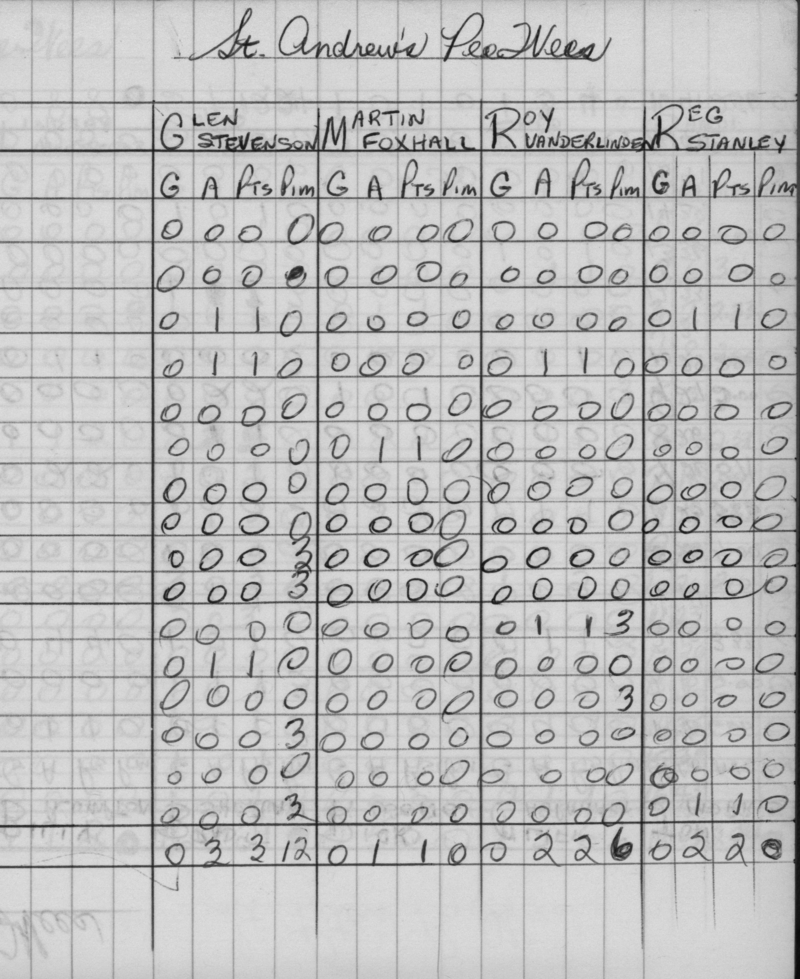 St. Andrew's Pee Wees
GLEN STEVENSON MARTIN FOXHALL ROY VANDERLINDEN REG STANLEY
G A PTS PIM G A PTS PIM G A PTS PIM G A PTS PIM
0 0 0 0 0 0 0 0 0 0 0 0 0 0 0 0
0 0 0 0 0 0 0 0 0 0 0 0 0 0 0 0
0 1 1 0 0 0 0 0 0 0 0 0 0 1 1 0
0 1 1 0 0 0 0 0 0 1 1 0 0 0 0 0
0 0 0 0 0 0 0 0 0 0 0 0 0 0 0 0
0 0 0 0 0 1 1 0 0 0 0 0 0 0 0 0
0 0 0 0 0 0 0 0 0 0 0 0 0 0 0 0
0 0 0 0 0 0 0 0 0 0 0 0 0 0 0 0
0 0 0 3 0 0 0 0 0 0 0 0 0 0 0 0
0 0 0 3 0 0 0 0 0 0 0 0 0 0 0 0
0 0 0 0 0 0 0 0 0 1 1 3 0 0 0 0
0 1 1 0 0 0 0 0 0 0 0 0 0 0 0 0
0 0 0 0 0 0 0 0 0 0 0 3 0 0 0 0
0 0 0 3 0 0 0 0 0 0 0 0 0 0 0 0
0 0 0 0 0 0 0 0 0 0 0 0 0 0 0 0
0 0 0 3 0 0 0 0 0 0 0 0 0 1 1 0
0 3 3 12 0 1 1 0 0 2 2 6 0 2 2 0